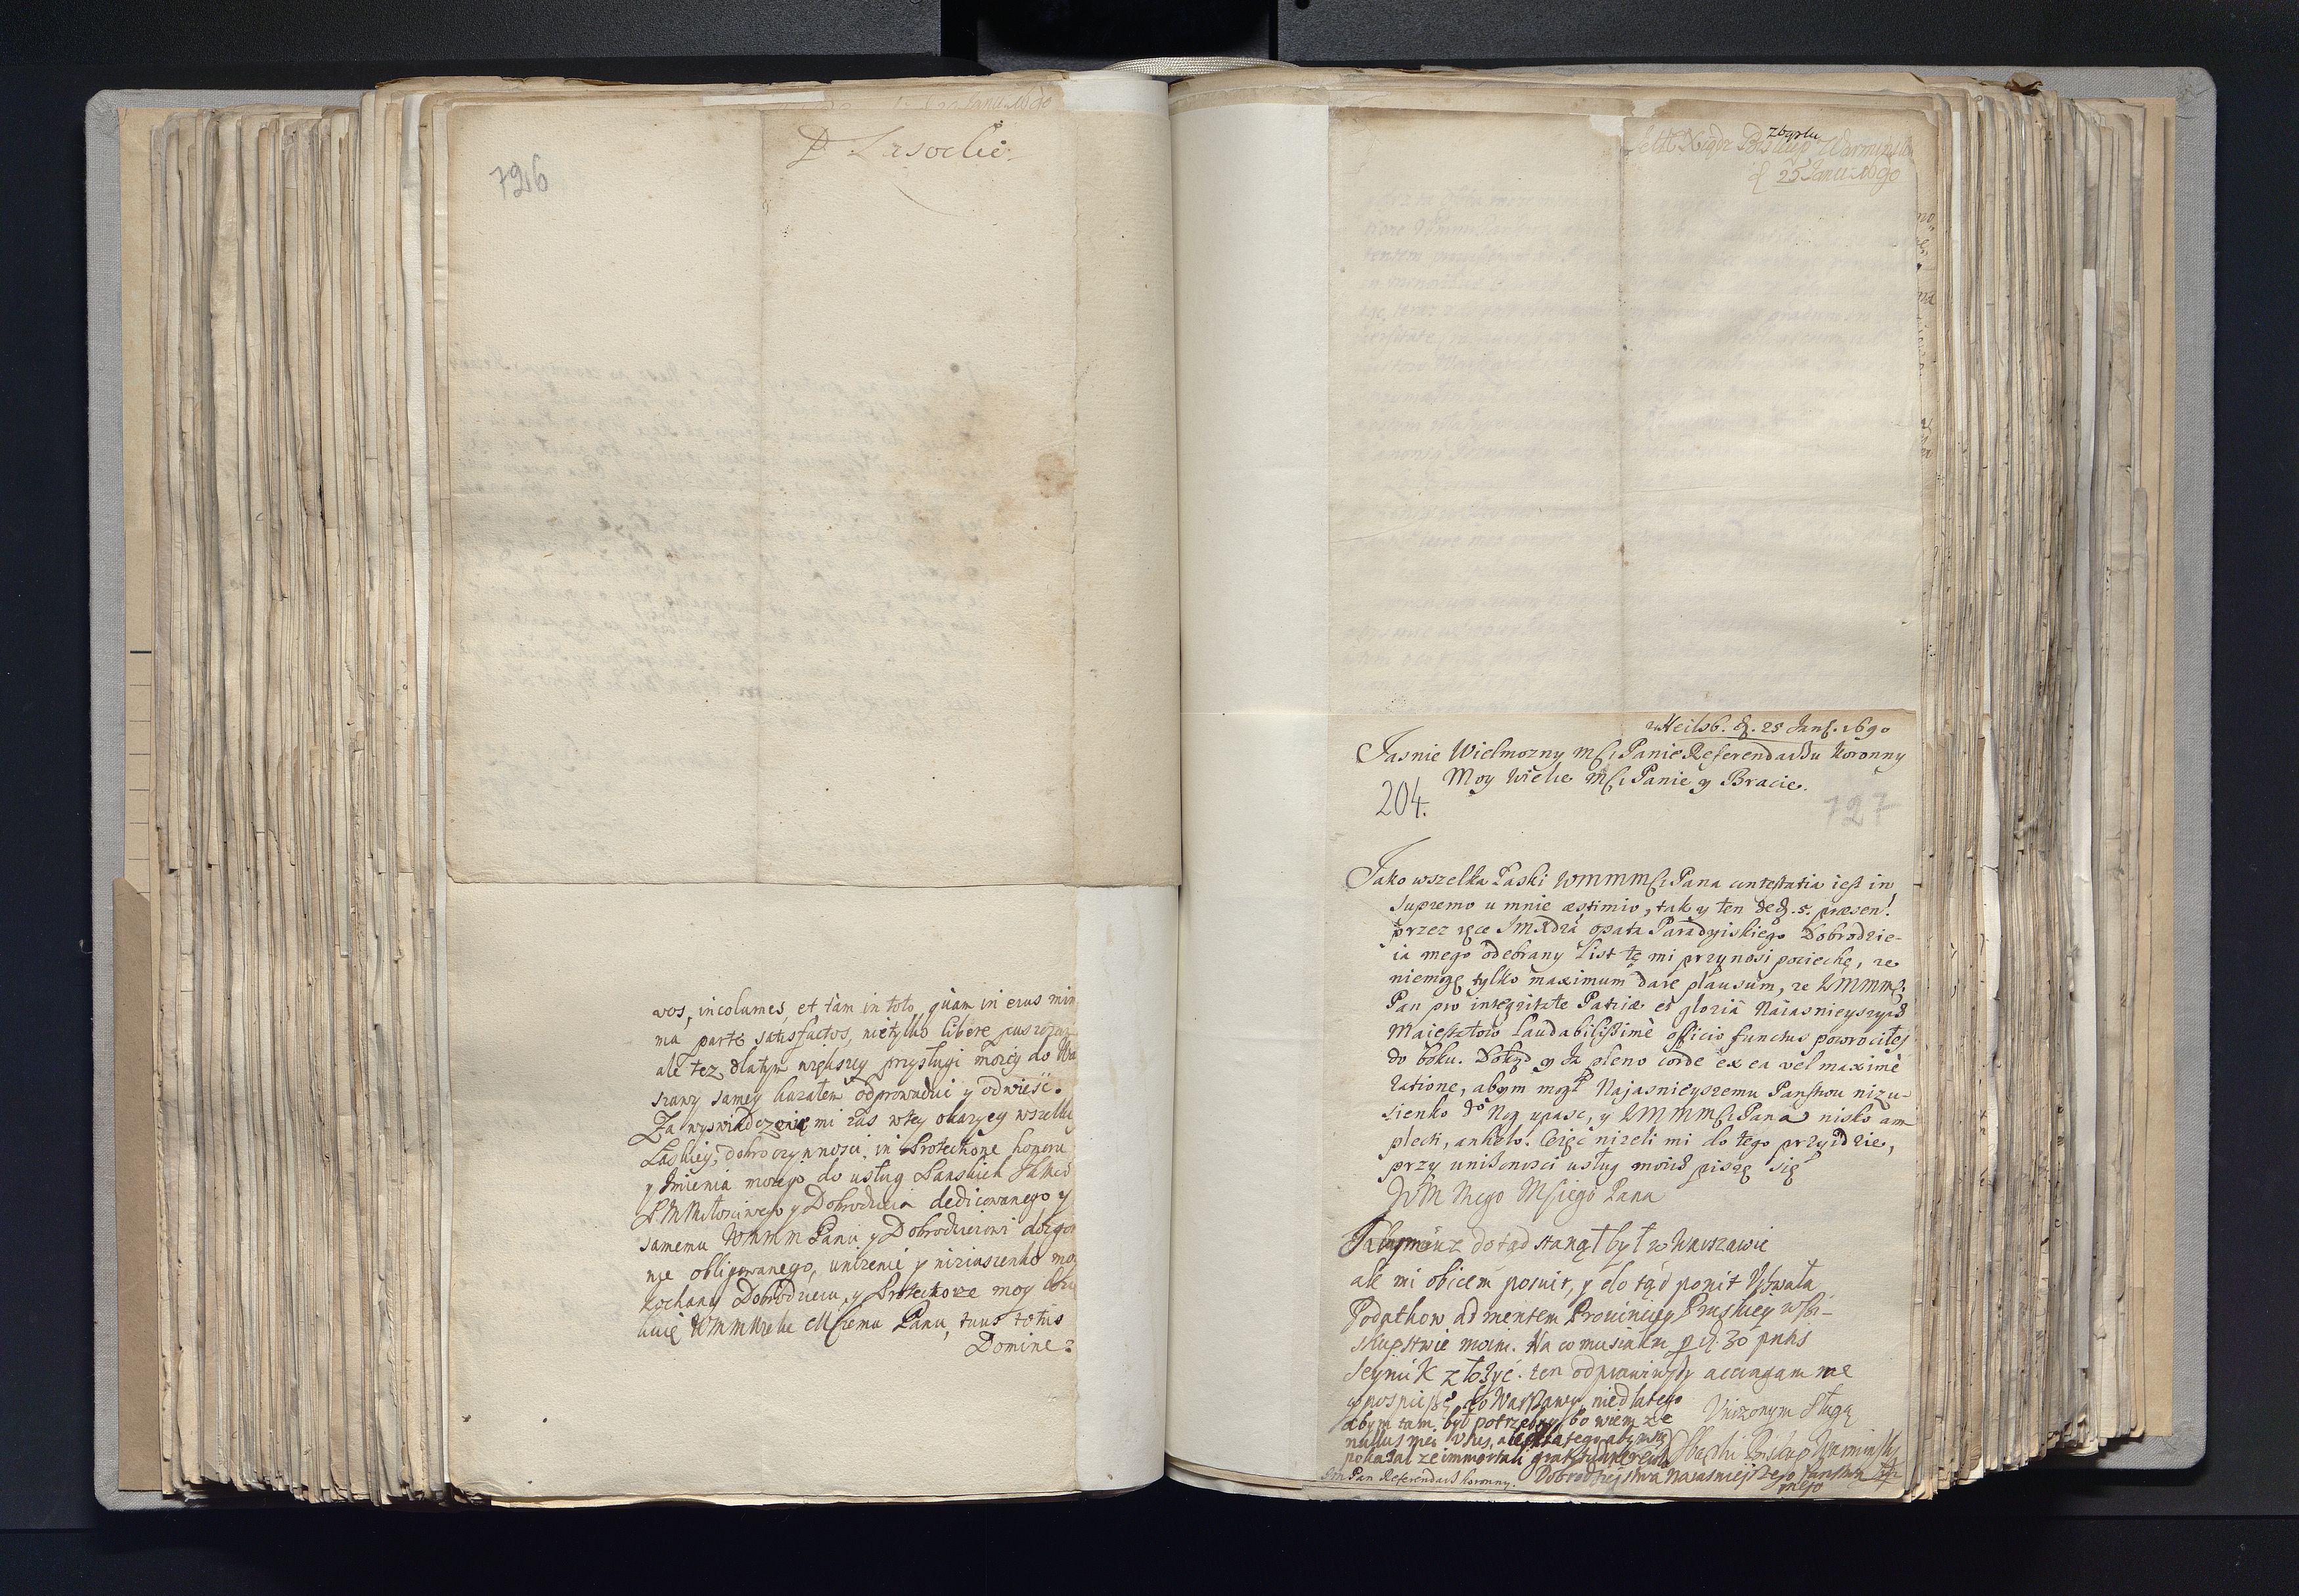 P Lasocki.
726
vos, incolumes, et tam in toto, quam in eius mini
ma parte satisfactos, nietylko libere
ale tez, dlatym większey przysługi moiey do Wa
szawy samey kazałem odprowadzić y odwieść.
Za wyswiadczenie mi zas wtey okazyey wszelkiey
Łaskiey, dobroczynnosci, in Protectione honoru
y Imienia moiego do usług Panskich
Miłosciwego y Dobrodzieia dedicowanego y
samemu Wmmm Panu y Dobrodzieiowi dozgon
nie obligowanego, unizenie y niziusienko moy
kochany Dobrodzieiu, y Protectorze moy
Wmm Panu, tuus totus
Domine:
zbąski
Xiądz Biskup Warminski
d 25 Janu. 1690
w Heilsb. d. 25 Jan. 1690
Jasnie Wielmozny Mſci Panie Referendarzu Koronny
Moy Wielce Mſci Panie y Bracie.
204.
727
Jako wszelka Łaski Wmmmſci Pana contestatia iest in
supremo u mnie æstimio, tak y ten de d. 5. præsen.
przez ręce JmXdza opata Paradyiskiego Dobrodzie-
ia mego odebrany List tę mi przynosi pociechę, ze
niemogę tylko maximum dare plausum, ze Wmmmſci
Pan pro integritate Patriæ et gloria Naiasnieyszych
Maiestatow Laudabilissimè officio functus powrociłes
do boku. Dokąd y Ja pleno corde ex ea vel maximè
ratione, abym mogł Najasnieyszemu Panstwu nizu-
sienko do Nog upasc, y Wmmmſci Pana nisko am
plecti, anhelo. Częsć nizeli mi do tego przyidzie,
przy unizonosci usług moich piszę się
WM Mego Mſciego Pana
Jabym iuz dotąd stanął był w Warszawie
ale mi obicem posuit, y do tąd ponit Vchwała
Podatkow ad mentem Prouinciey Pruskiey w Bi-
skupstwie moim. Na co musiałem p d. 30 pnħs
Seymik złożyć. ten odprawiwszy accingam me
y pospieszę do Warszawy, nie dlatego
abym tam był potrzebny, bo wiem ze
nullus mei usus, ale dlatego abym
pokazał ze immortali gratitudine
Dobrodzieystwa Naiasnieyszego Panstwa
mego
Vnizonym sługą
Zbąski Biskup Warminsky
Jm Pan Referendarz koronny.